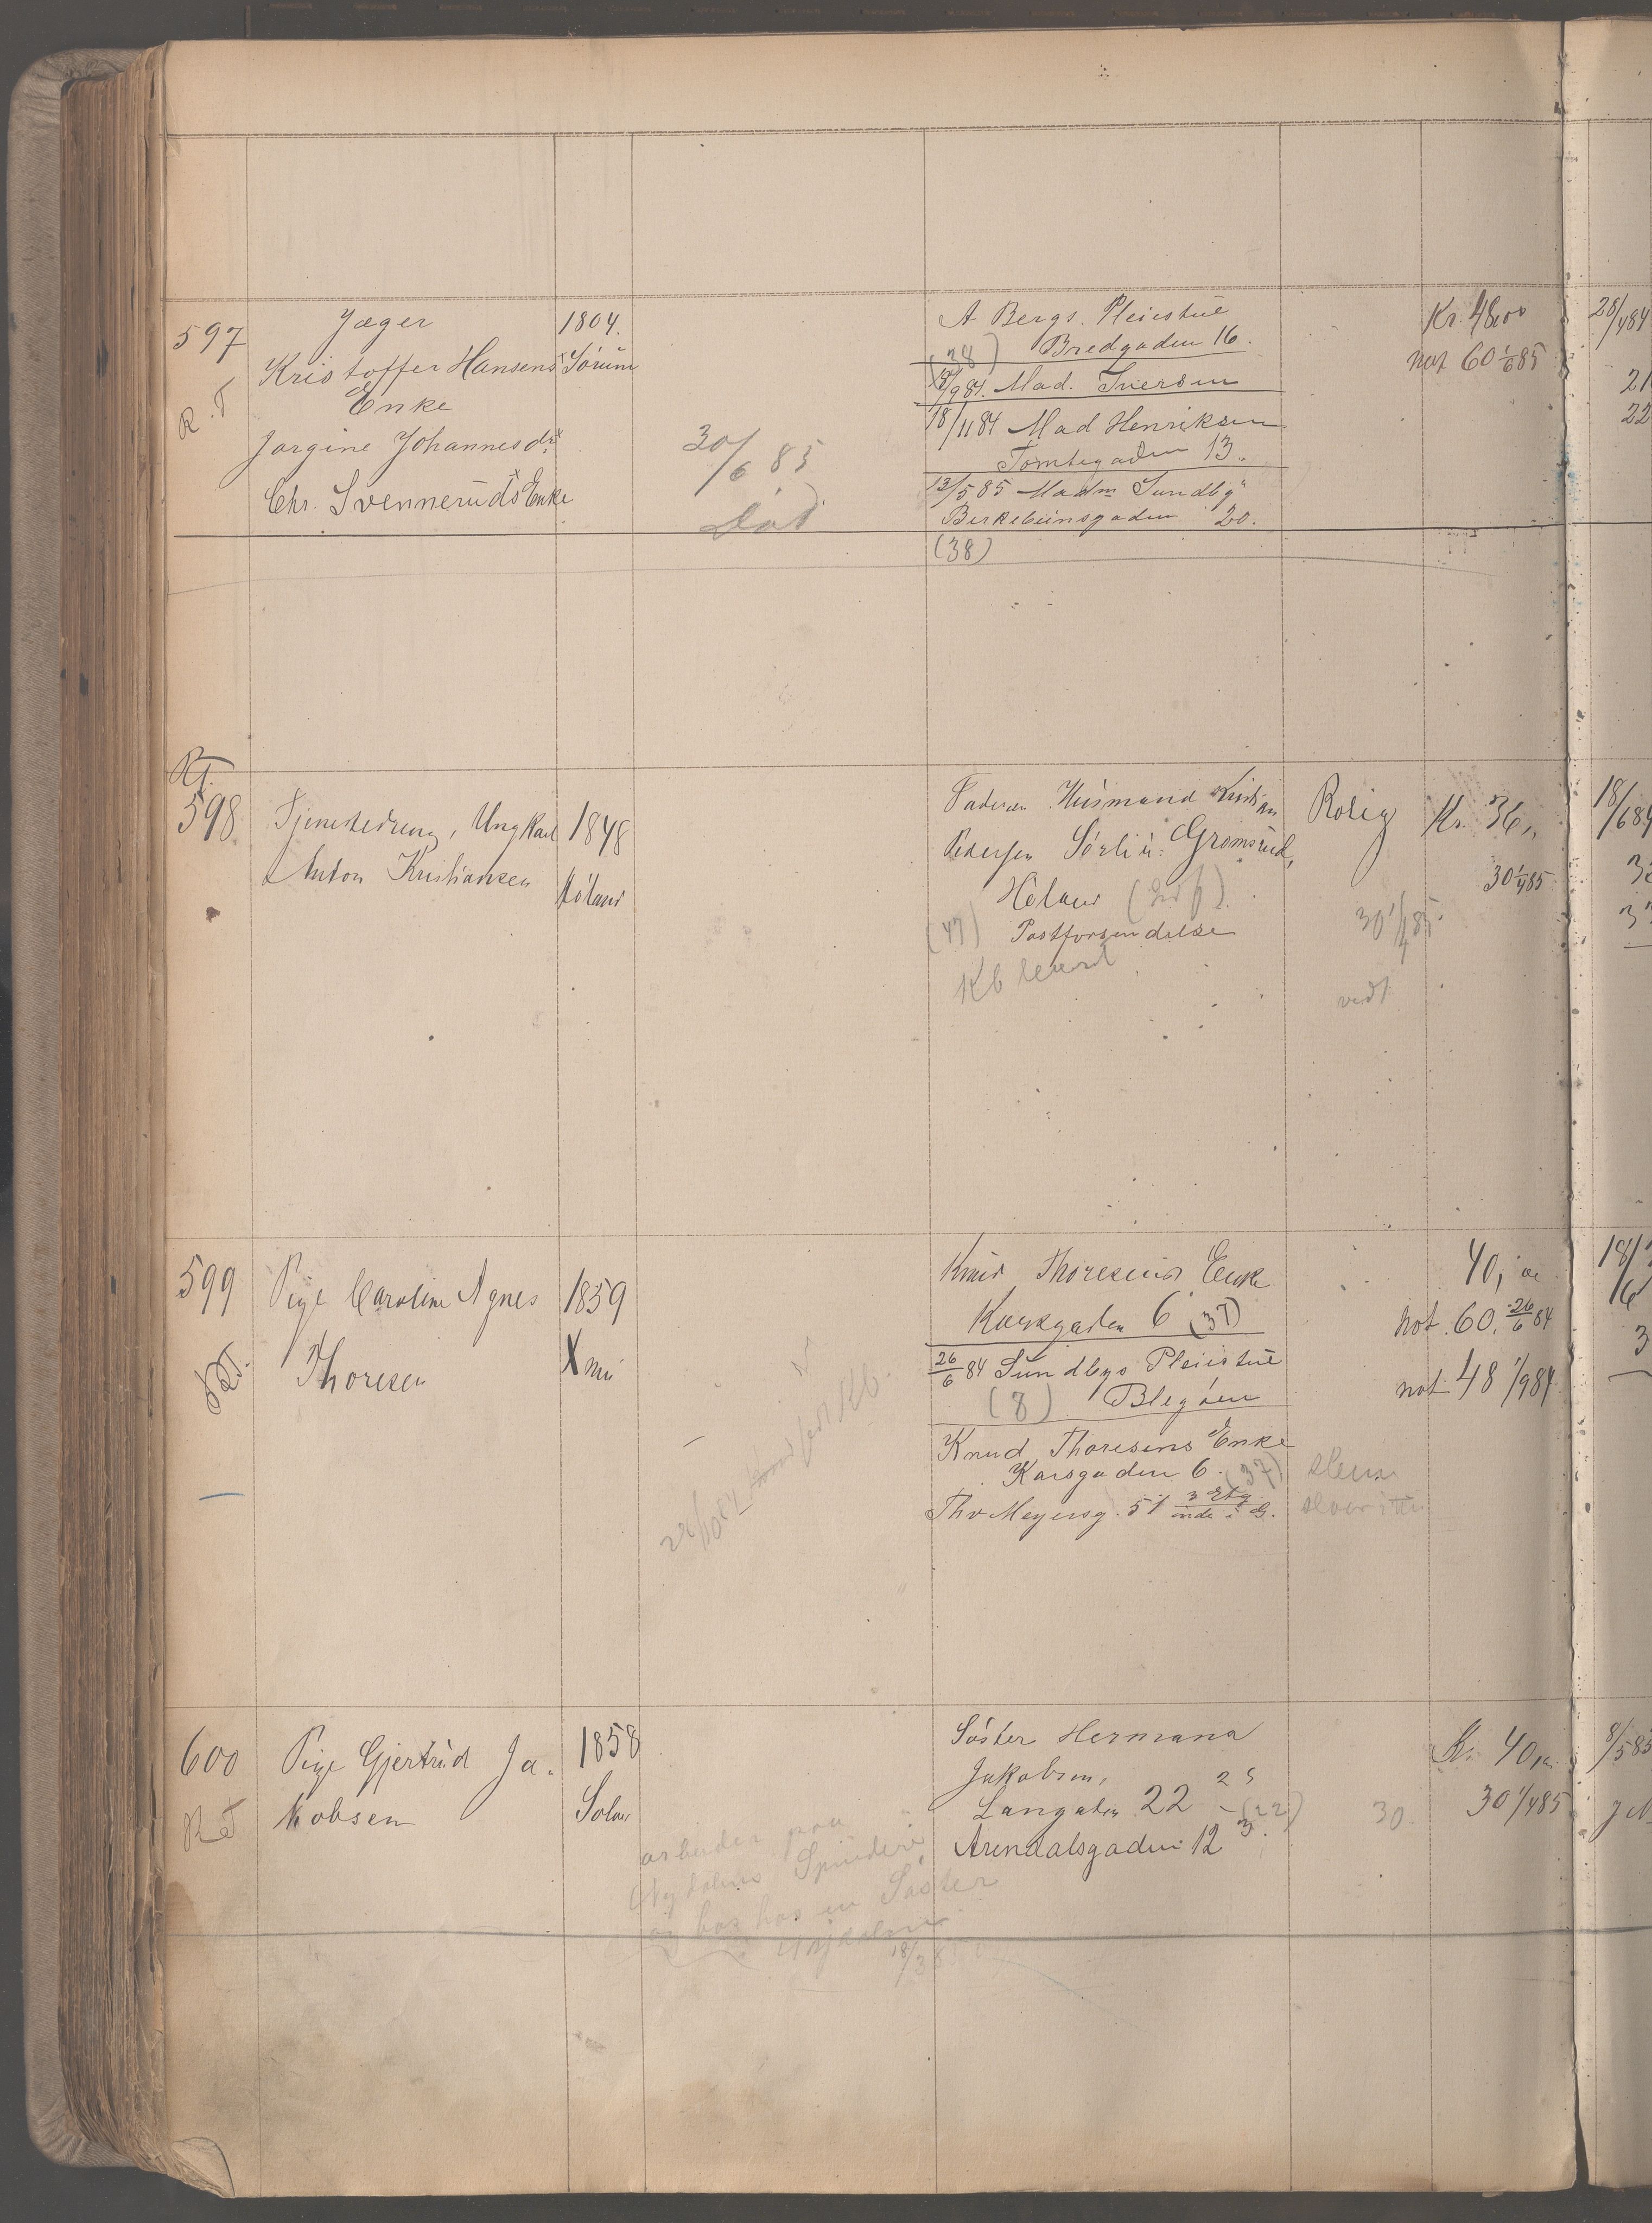 597
R.T
Jæger
Kristoffer Hansens
Enke
Jørgine Johannesdr
Chr. Svenneruds Enke
1804.
Sörum
30/6 85
Död
A Bergs. Pleiestue
(28) Bredgaden 16.
/9 84. Mad. Iversen
18/11 84 Mad Henriksen
Tomtegaden 13.
13/5 85 Madm Sundby
Birkebeinsgaden 20.
(38)
Kr. 48,00
not 60 1/6 85
28/4 84
21
22
RT.
598
Tjenestedreng, Ungkarl
Anton Kristiansen
1848
Höland
Faderen Husmand Kristian
Pedersen Sörli u. Gromsrud,
Höland
(47) Postforsendelse
Kb
Rolig
30 1/4 85.
vedt
Kr. 36,,
30 1/4 85
18/6 84
599
RT.
Pige Caroline Agnes
Thoresen
1859
Xnia
28/10 84
Knud Thoresens Enke
Korsgaden 6 (37)
26/6 84 Sundbys Pleiestue
(8) Blegöien
Knud Thoresens Enke
Korsgaden 6. (37)
Thv Meyersg. 51 3 Etg
inde i G.
40,
not. 60. 26/6 84
not 48 1/9 84
18/
16
3
600
R T
Pige Gjertrud Ja-
kobsen
1858
Solør
arbeider paa
Nydalens Spinderi
og bor hos en Søster
Nydalen
18/3 85
Söster Hermana
Jakobsen,
Langaden 22 - (22)
Arendalsgaden 12
30.
Kr. 40,,
30 1/4 85
8/5 83